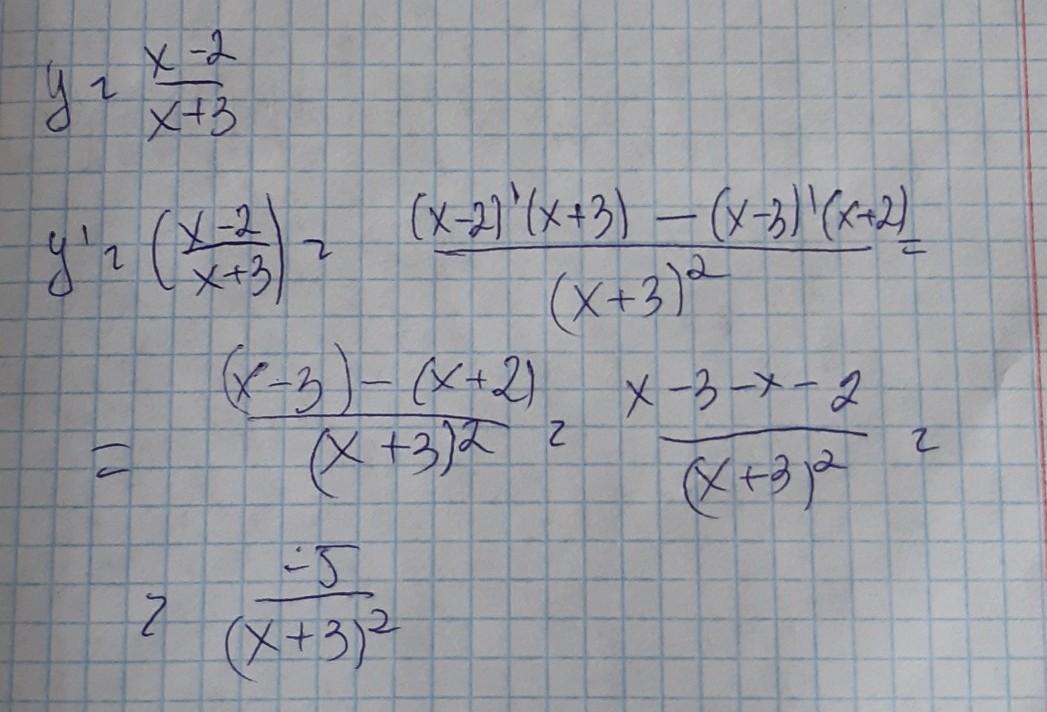 y = (x-2)/(x+3)
y' = ((x-2)/(x+3)) = ((x-2)'(x+3) - (x-3)'(x+2))/(x+3)² =
= ((x-3) - (x+2))/(x+3)² = (x-3-x-2)/(x+3)² =
= -5/(x+3)²